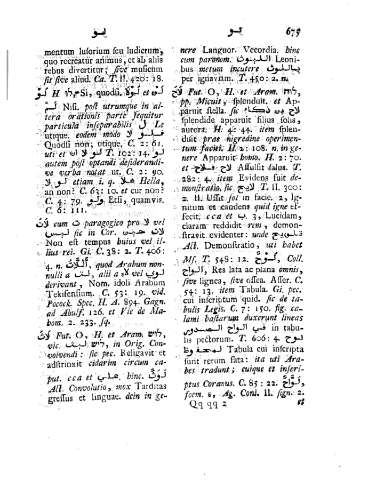 لو
يو
675
mentum lusorium seu ludicrum,
quo recreatur animus, et ab aliis
rebus divertitur; sive musicum
sit sive aliud. Ca. T. II. 420: 18.
H Si, quodsi.
Nisi. post utrumque in al-
tera orationis parte sequitur
particula inseparabilis ل Le
utique. eodem modo
Quodsi non; utique, C. 2: 61.
uti et T. 102: 14.
autem post optandi desiderandi-
ve verba notat ut. C. 2: 90.
لولا etiam i. q. هلا Hella,
an non? C. 63: 10. et cur non?
C. 4: 79. ولو Etsi, quamvis.
C. 6: 111.
لات cum ت paragogico pro لا vel
ليس sic in Cor.
Non est tempus huius vel il-
lius rei. Gi. C. 38: 2. T. 406:
4. n. quod Arabum non-
nulli a لت, alii a vel
derivant, Nom. idoli Arabum
Tekifensium. C. 53: 19. vid.
Pocock. Spec. H. A. 894. Gagn.
ad Abulf. 126. et Vic de Ma-
hom. 2. 233. sq.
لاث Fut. O, H. et Aram. לוש,
ליש vel in Orig. Con-
voivendi: sic pec. Religavit et
adstrinxit cidarim circum ca-
put. cca et علي. hinc لوث
All. Convolutio, mox Tarditas
gressus et linguae. dein in ge-
nere Languor. Vecordia. hinc
cum paronom. Leoni-
bus metum incutere
per ignaviam. T. 450: 2. n.
لاح Fut. O, H. et Aram.
pp. Micuit, splenduit. et Ap-
paruit stella. sic
splendide apparuit filius solis,
aurora. H. 4: 44. item splen-
duit prae nigredine operimen-
tum faciei. H. 2: 108. n. in ge-
nere Apparuit homo. H. 2: 70.
et Affulsit salus. T.
282: 4. item Evidens fuit de-
monstratio, sic T. II. 300:
2. II. Ussit sol in facie. 2. Ig-
nitum et candens quid igne ef-
fecit. cca et ب. 3. Lucidam,
claram reddidit rem, demon-
stravit evidenter: unde تلويح
All. Demonstratio, uti habet
Ms. T. 548: 12. Coll.
Coll. Res lata ac plana omnis,
sive lignea, sive ossea. Asser. C.
54: 13. item Tabula. Gi. pec.
cui inscriptum quid. sic de ta-
bulis Legis. C. 7: 150. sig. ca-
lami bastarum duxerunt lineas
في الواح الصدور in tabu-
lis pectorum. T. 606: 4. لوح
محفوظ Tabula cui inscripta
sunt rerum fata: ita uti Ara-
bes tradunt; cuique et inseri-
ptus Coranus. C. 85: 22. لواح
form. 8, Ag. Coni. II. sign. 2.
Qq qq 2
et